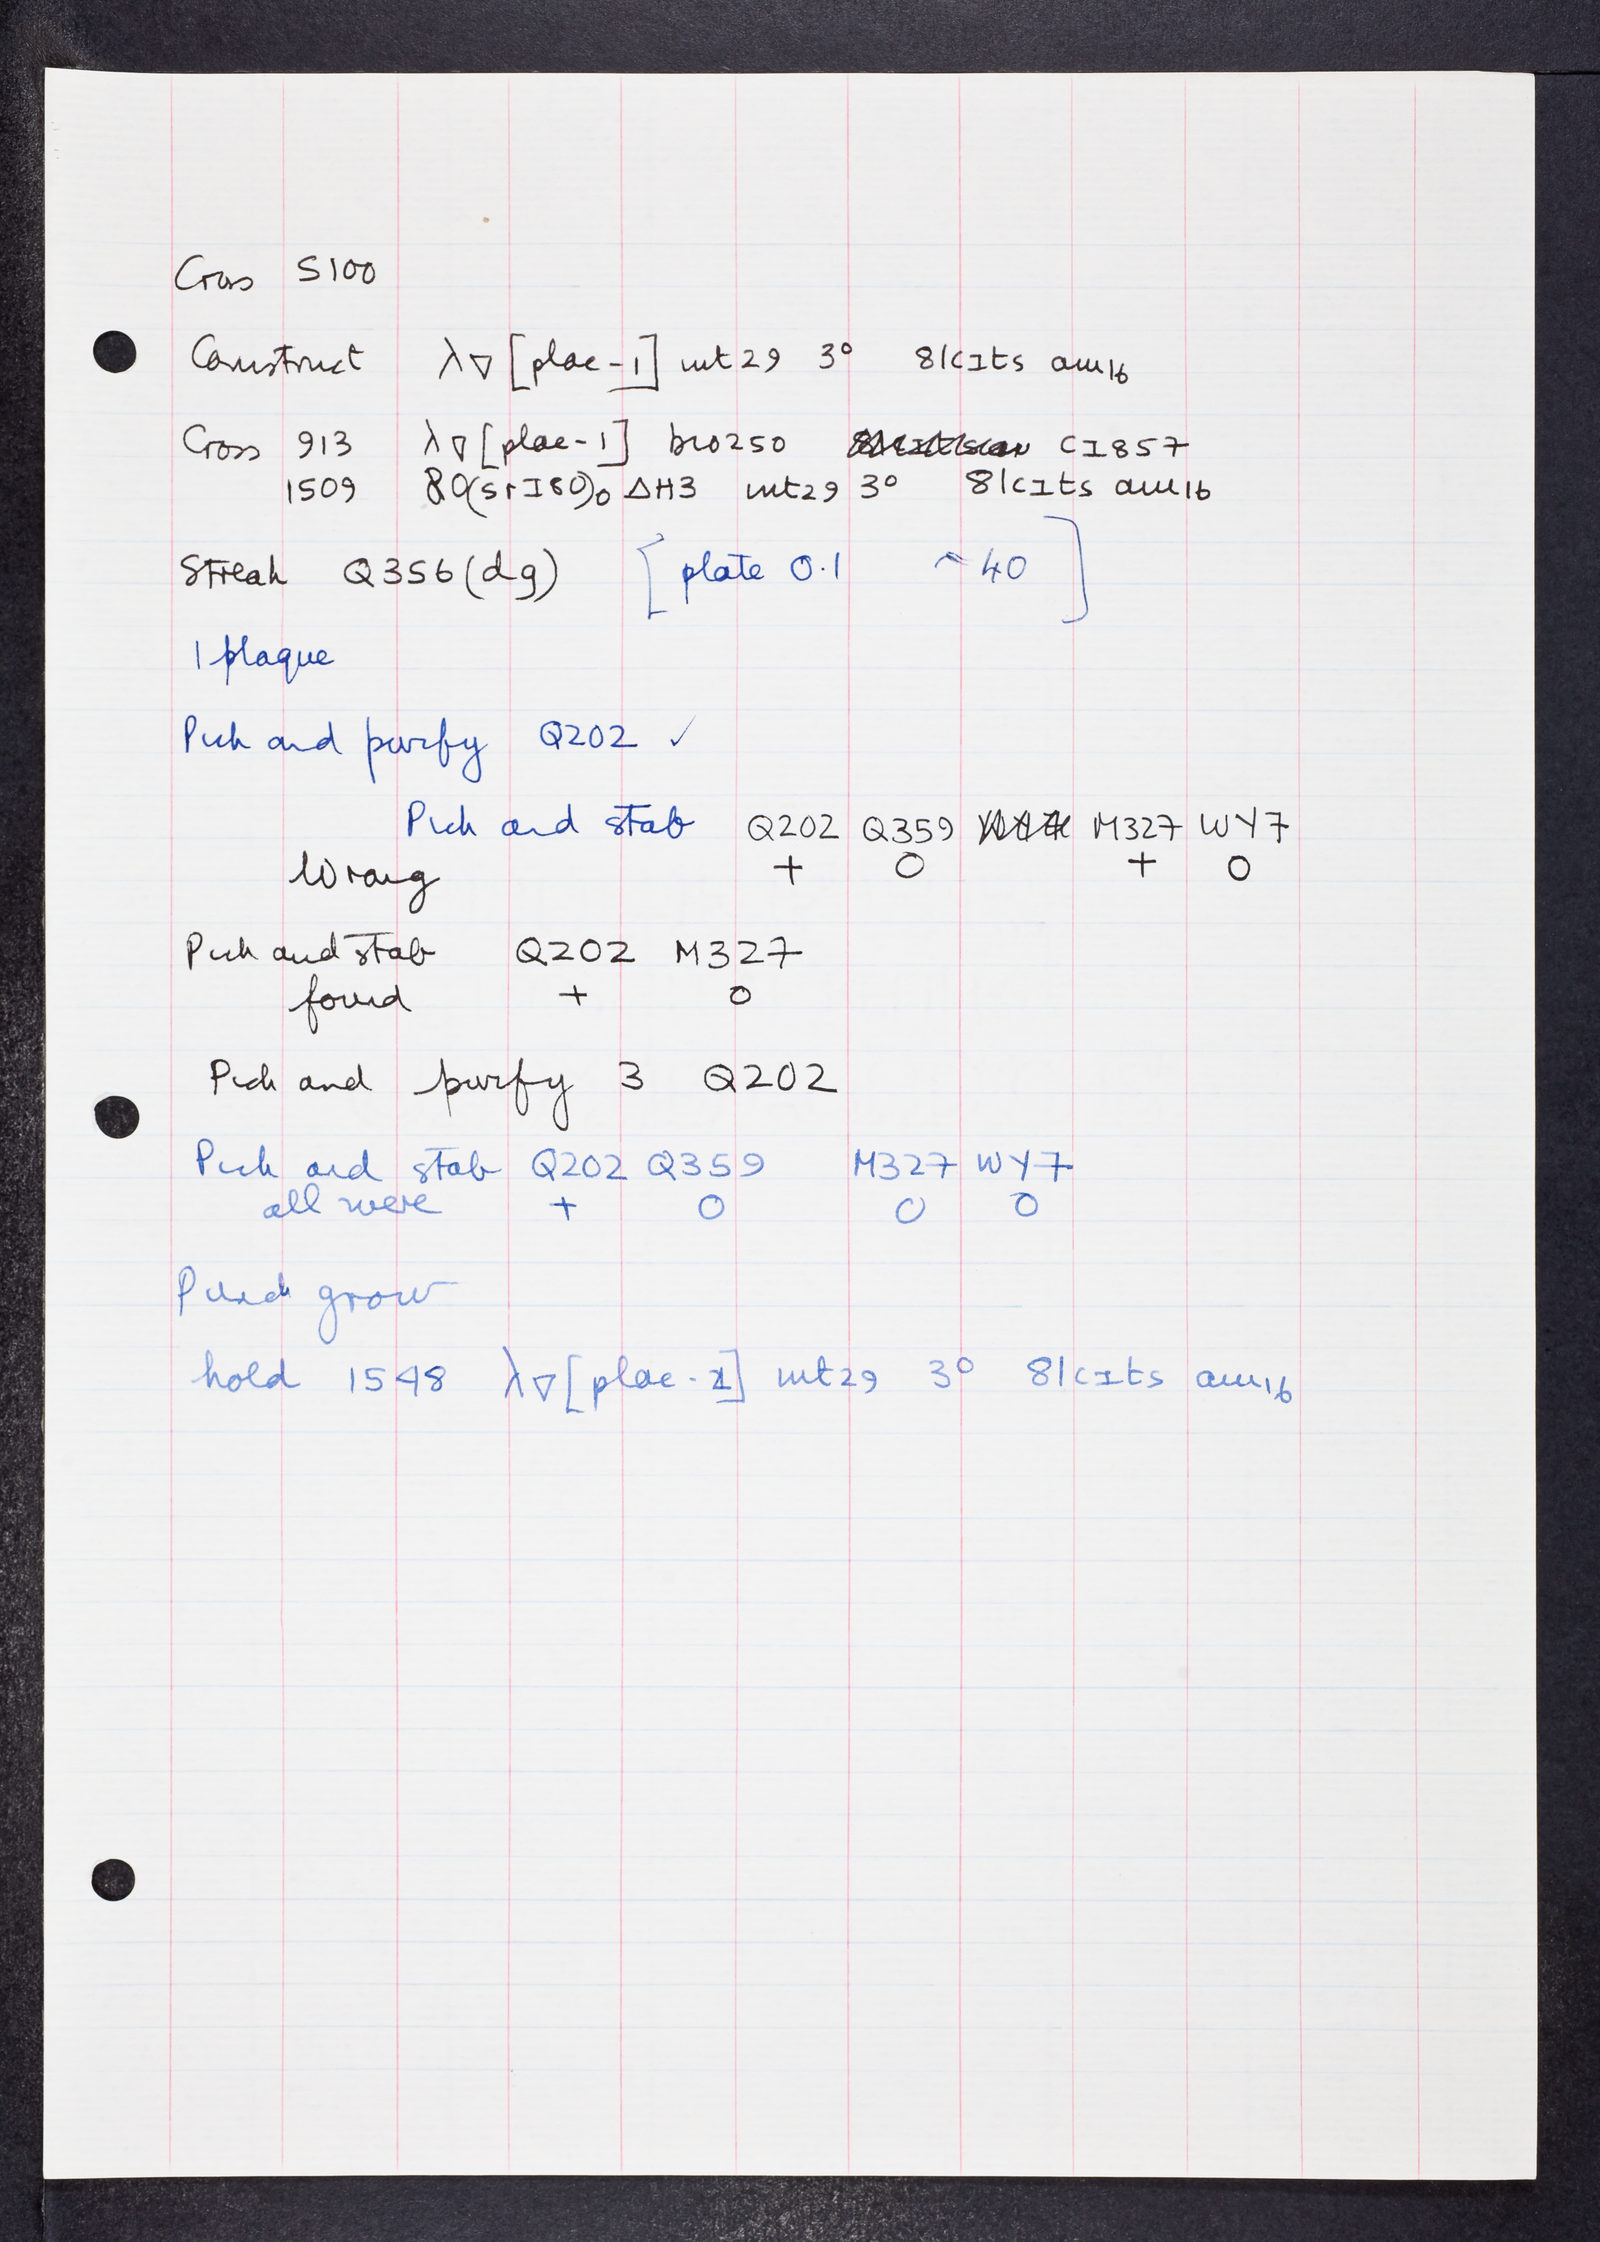 Cross S100
Construct λ▽[plac-1] int29 3° 81cIts am16
Cross 913 λ▽[plac-1] bio250 CI857
1509 80(srI80)0 ΔH3 int29 3° 81cIts am16
Streak Q356(dg) [plate 0.1 ~40]
1 plaque
Pick and purify Q202 ✓
Pick and stab Q202 Q359 M327 WY7
Wrong + O + O
Pick and stab Q202 M327
found + O
Pick and purify 3 Q202
Pick and stab Q202 Q359 M327 WY7
all were + O O O
grow
hold 1548 λ▽[plac-1] int29 3° 81cIts am16